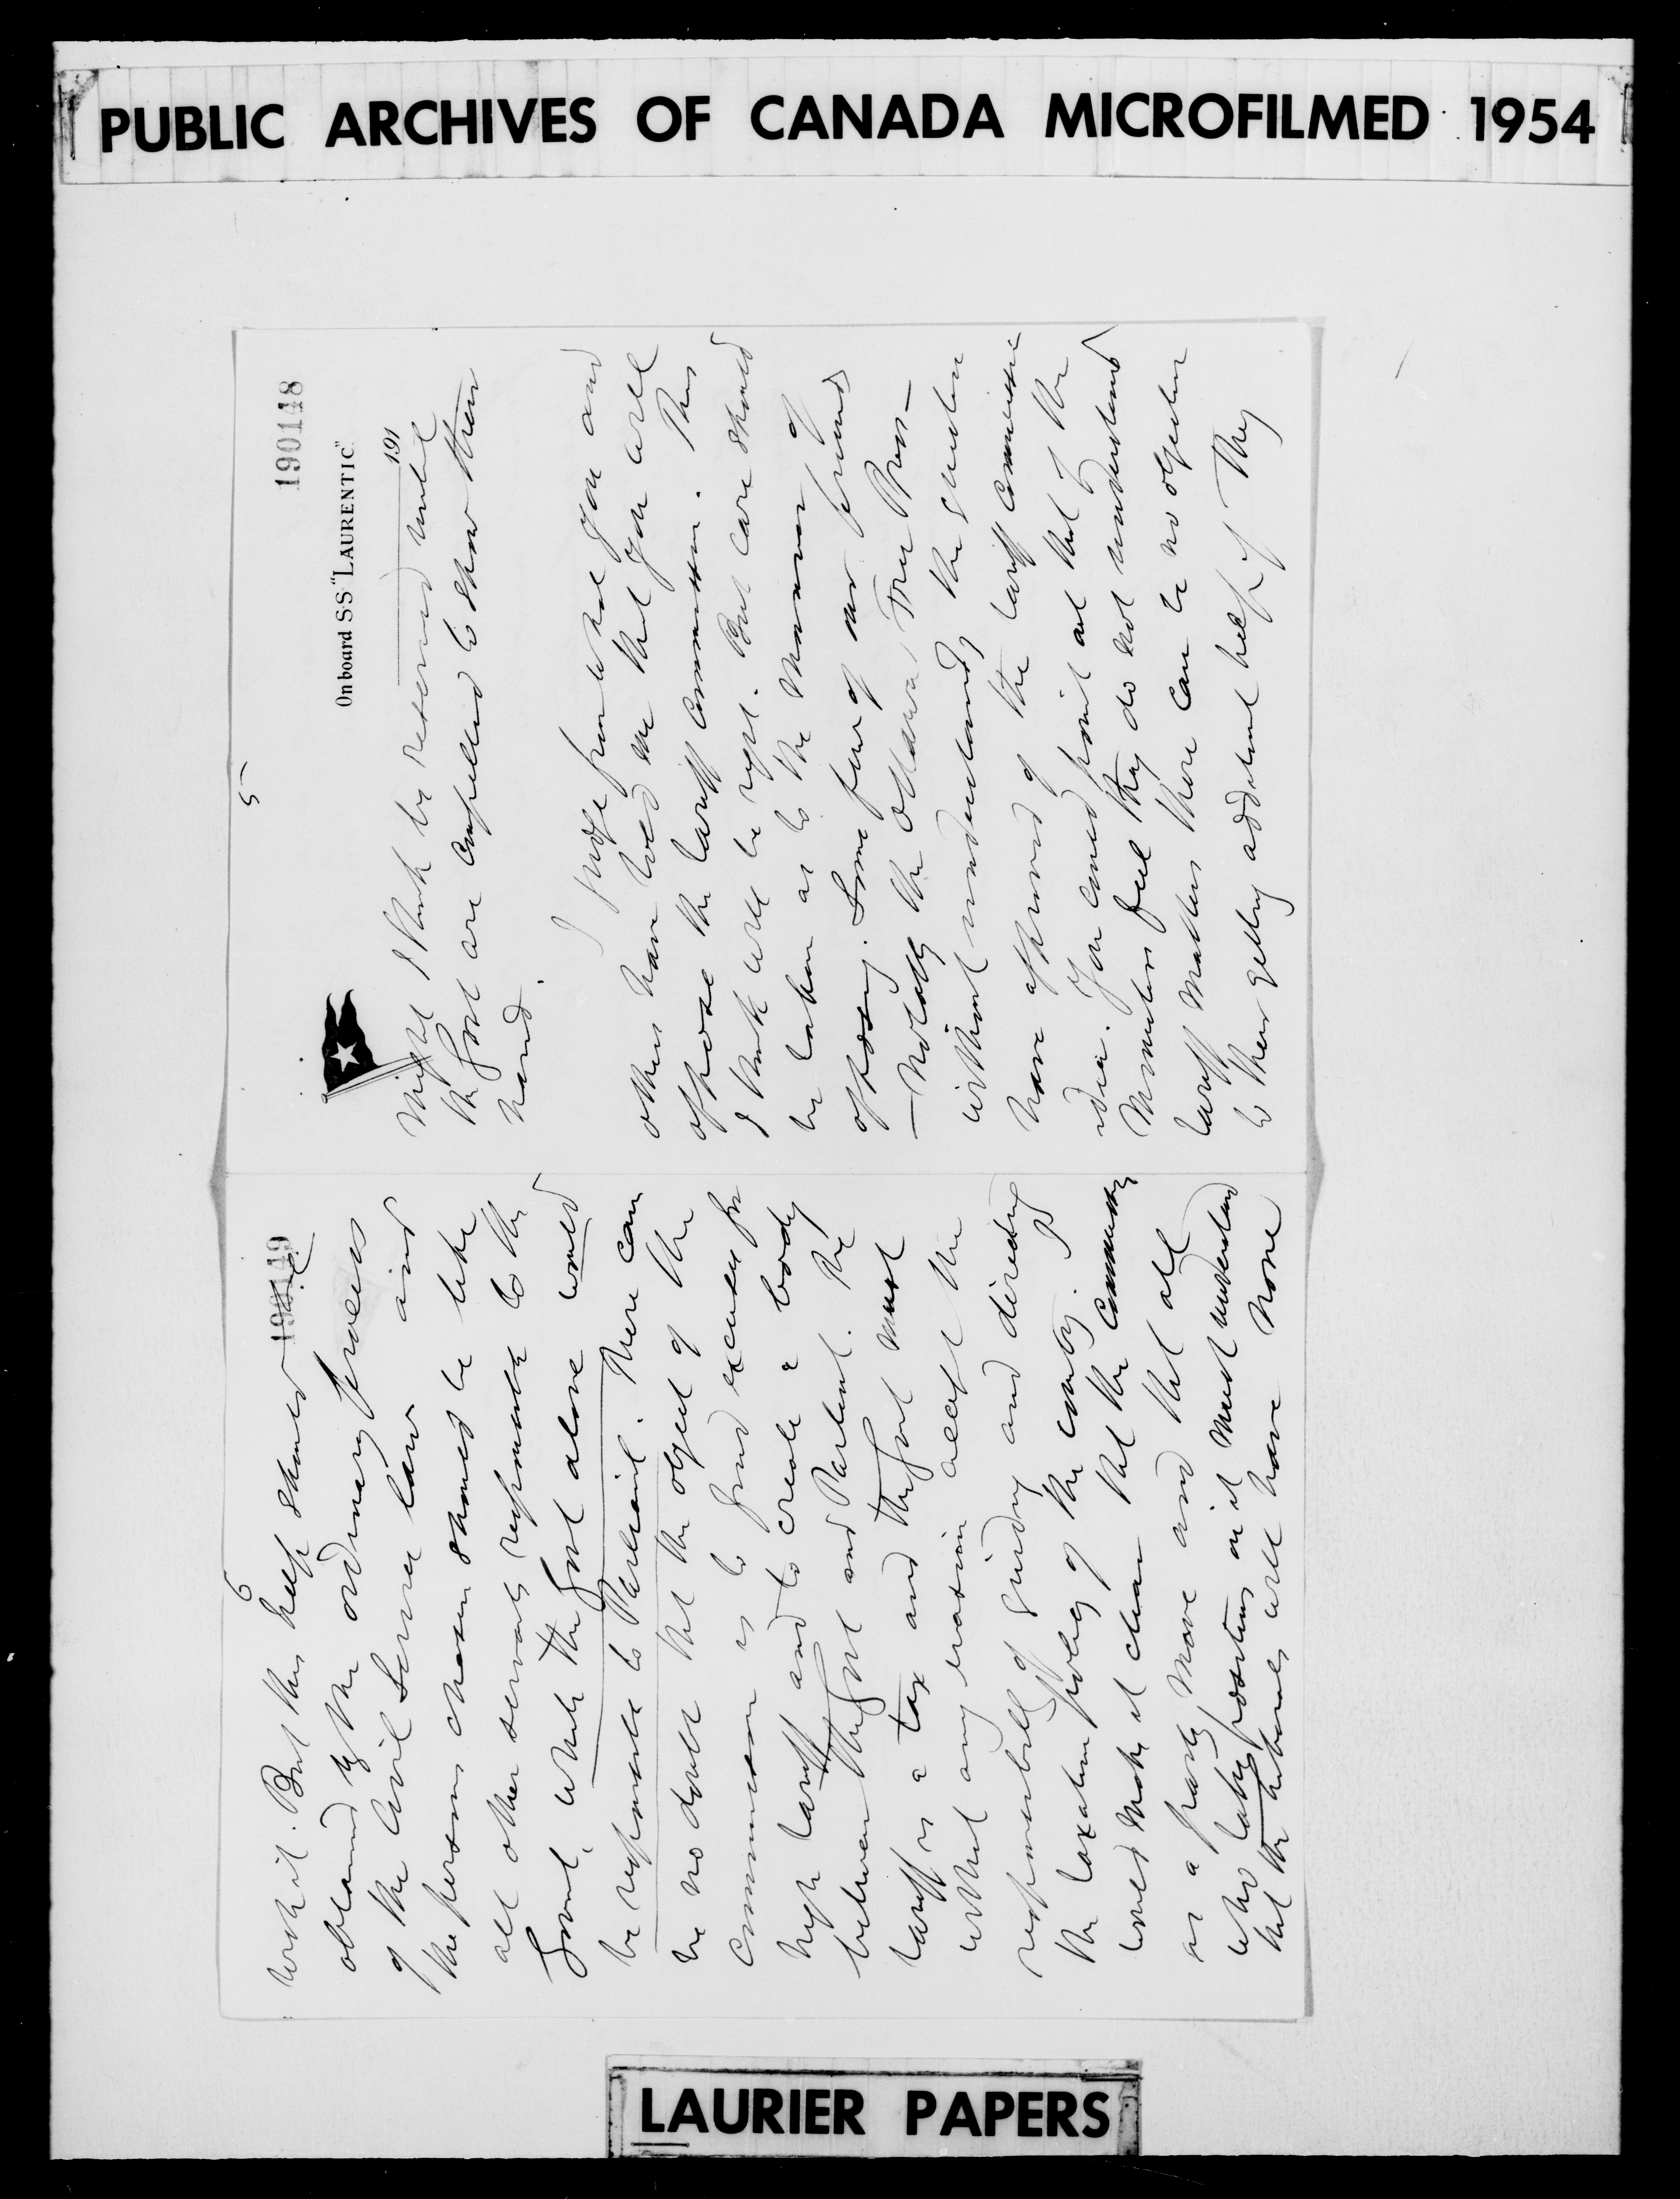 PUBLIC ARCHIVES OF CANADA MICROFILMED 1954
5
190148
On board SS "LAURENTIC"
191
might I think be reserved until
the Govt are compelled to show their
hand.
I judge from what you and
others have told me that you will
oppose the tariff commission. This
I think will be right. But care should
be taken as to the manner of
opposing. Some few of our friends
— notably the Ottawa Free Press —
without understanding the question
have approved of the tariff commission
idea. You could point out that if the
Ministers feel they do not understand
tariff matters there can be no objection
to their getting additional help if they
6
190149
wish it. But this help should
obtained by the ordinary process
of the Civil Service law and
the persons chosen should be like
all other servants responsible to the
Govt, while the Govt alone would
be responsible to Parliament. There can
be no doubt that the object of the
Commission is to find excuses for
high tariff and to create a body
between the Govt and Parliament. The
tariff is a tax and the Govt must
without any evasion accept the
responsibility of guiding and directing
the taxation policy of the country.
would make it clear that the Community
as a party move and that all
who take positions on it must understand
that the Liberals will have none
LAURIER PAPERS